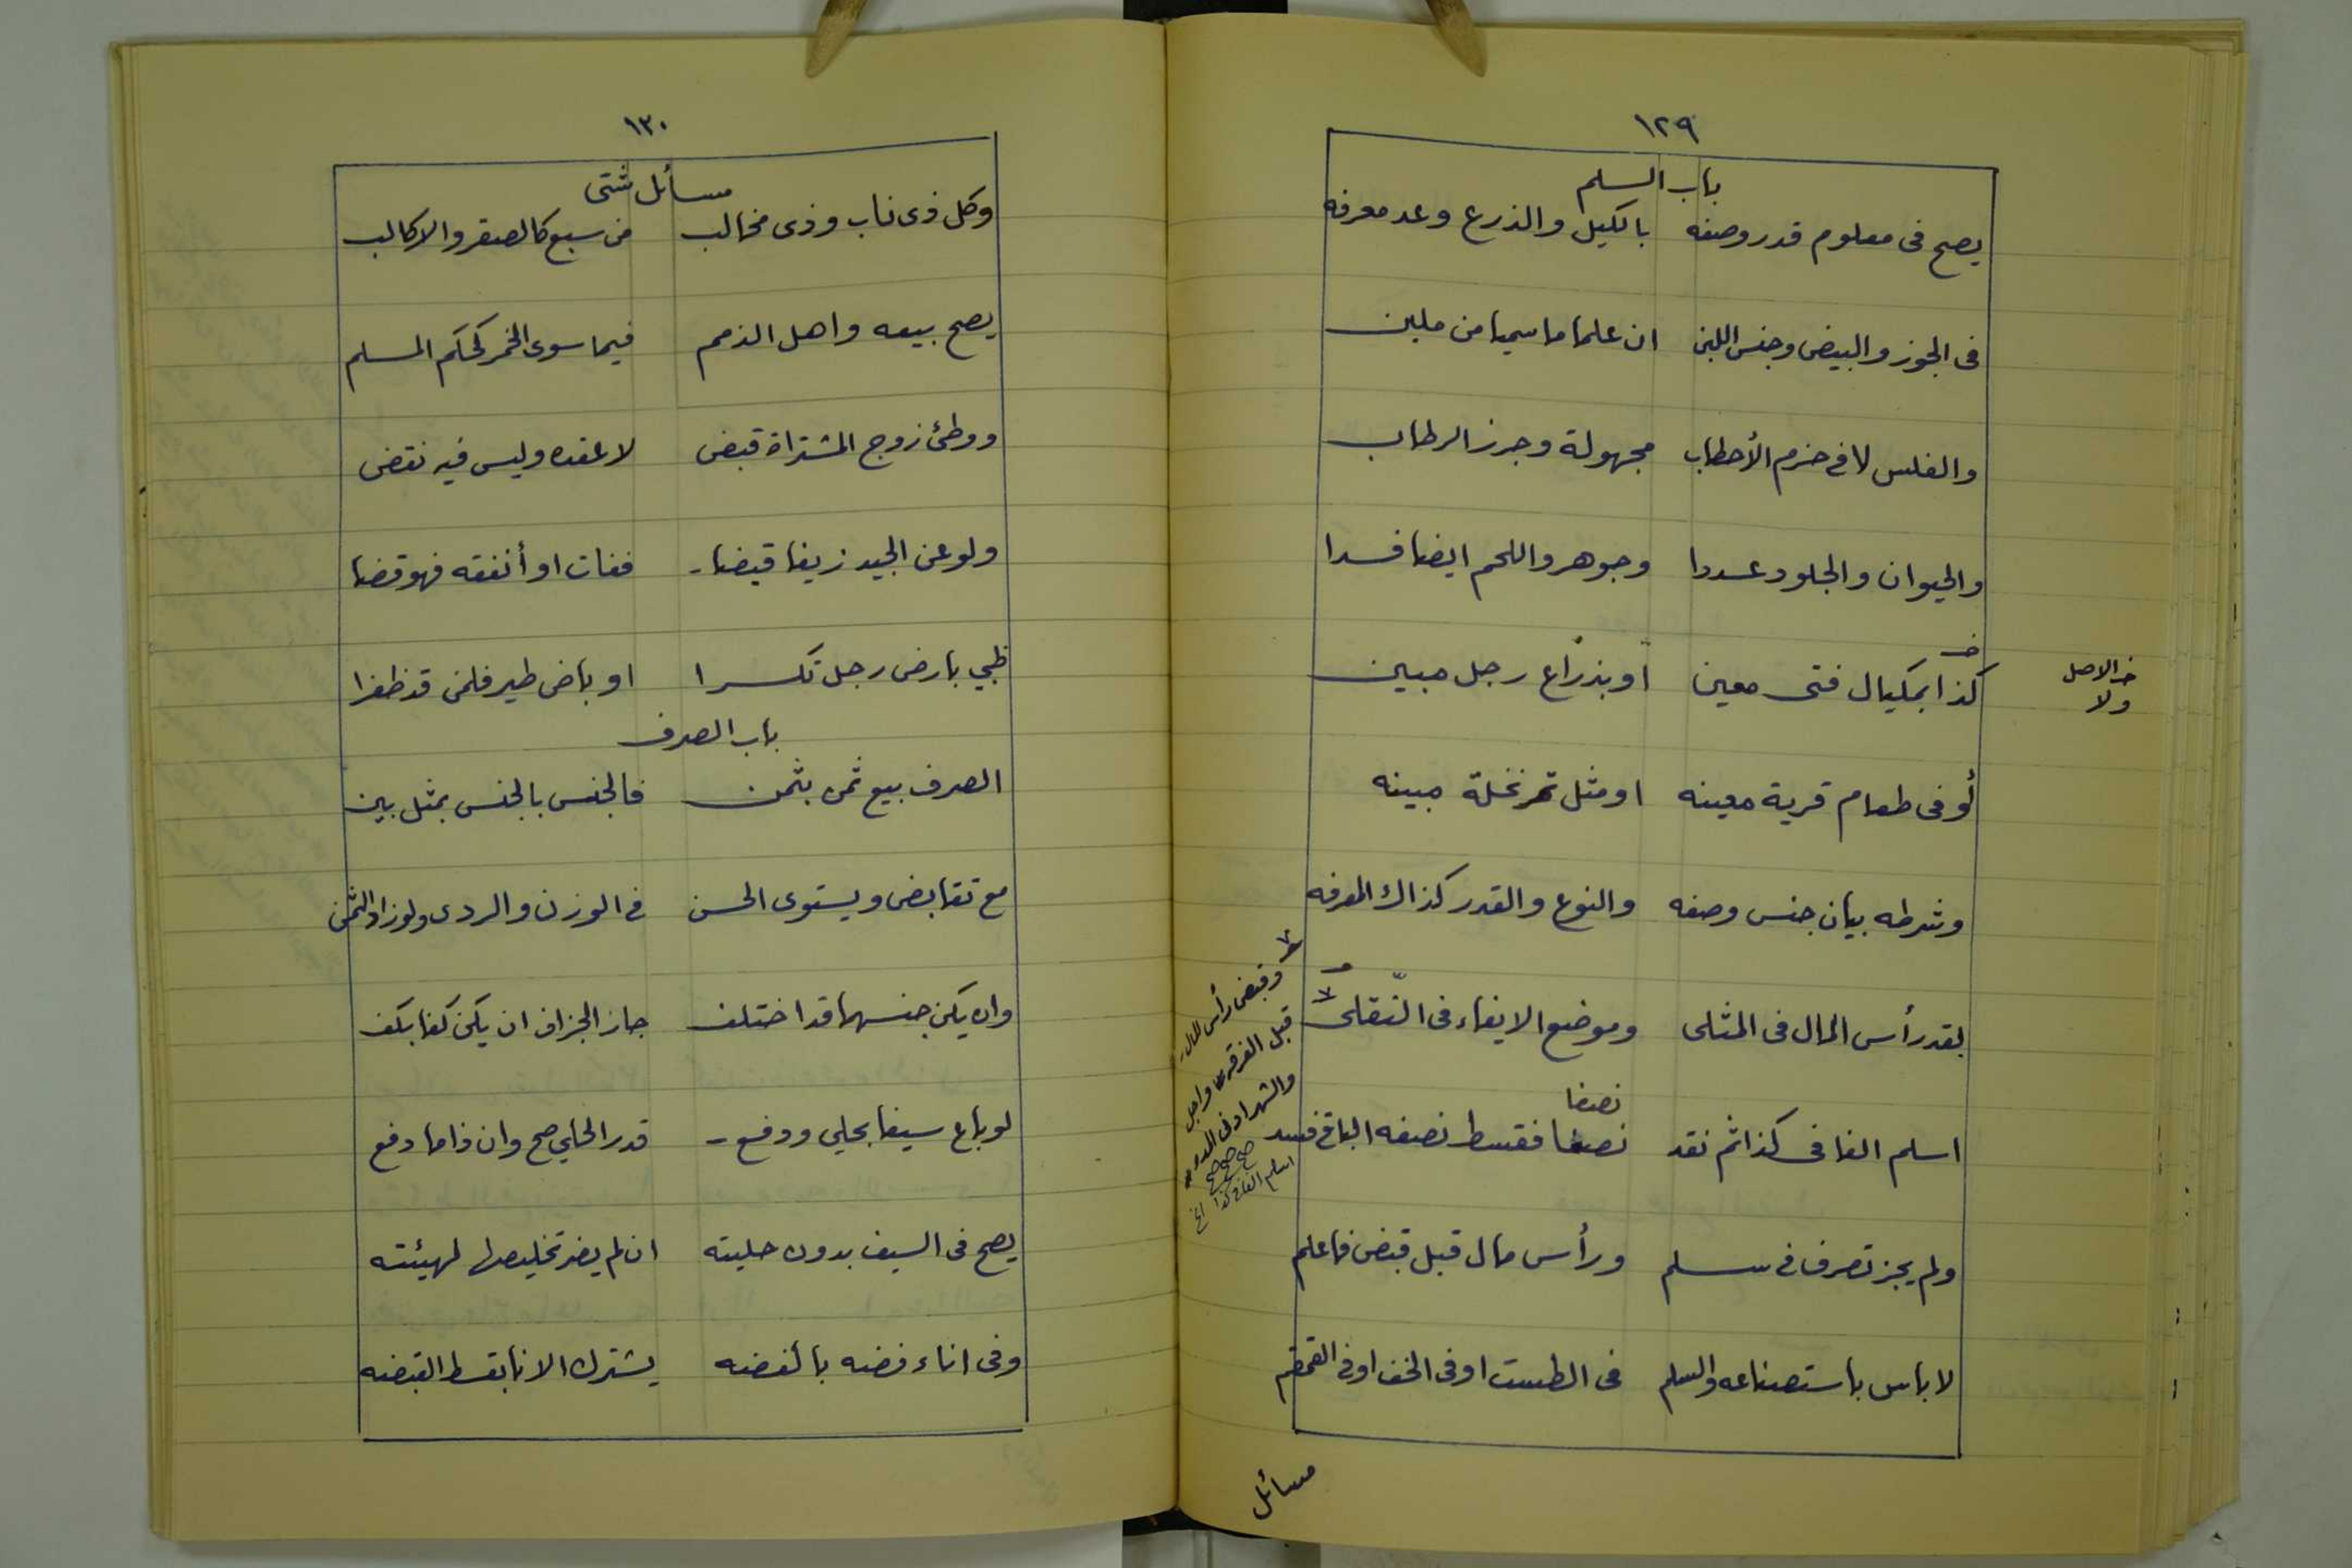 ١٢٩
باب السلم
يصح فى معلوم قدر وصفه بالكيل والذرع وعد معرفه
فى الجوز والبيض وجنس اللبن ان علما ما سميا من ملبن
والفلس لا فى حزم الأحطاب مجهولة وجرز الرطاب
والحيوان والجلود عددا وجوهر واللحم ايضا فسدا
كذا بمكيال فتى معين او بذراع رجل مبين
خ الاصل
ولا
أو فى طعام قرية معينه او مثل تمر نخلة مبينه
وشرطه بيان جنس وصفه والنوع والقدر كذاك المعرفه
بقدر رأس المال فى المثلى وموضع الايفاء فى النّقلى
وقبض رأس المال
قبل الفرقه واجل
والشهر ادنى
صح صح صح
اسلم الفا فى كذا الخ
نصفا
اسلم الفا فى كذا ثم نقد نصفا فقسط نصفه الباقى فسد
ولم يجز تصرف فى سلم ورأس مال قبل قبض فاعلم
لا باس باستصناعه والسلم فى الطست او فى الخف او فى القمقم
مسائل
١٣٠
مسائل شتى
وكل ذى ناب وذى مخالب من سبع كالصقر والاكالب
يصح بيعه واهل الذمم فيما سوى الخمر كحكم المسلم
ووطئ زوج المشتراة قبض لا عقده وليس فيه نقض
ولو عن الجيد زيفا قبضا ففات او أنفقه فهو قضا
ظبي بارض رجل تكسرا او باض طير فلمن قد ظفرا
باب الصرف
الصرف بيع ثمن بثمن فالجنس بالجنس بمثل بين
مع تقابض ويستوى الحسن فى الوزن والردى ولو زاد الثمن
وان يكن جنسهما قد اختلف جاز الجزاف ان يكن كفا بكف
لو باع سيفا بحلي ودفع قدر الحلي صح وان ذا ما دفع
يصح فى السيف بدون حليته ان لم يضر تخليصها لهيئته
وفى اناء فضه بالفضه يشترك الانا بقسط القبضه